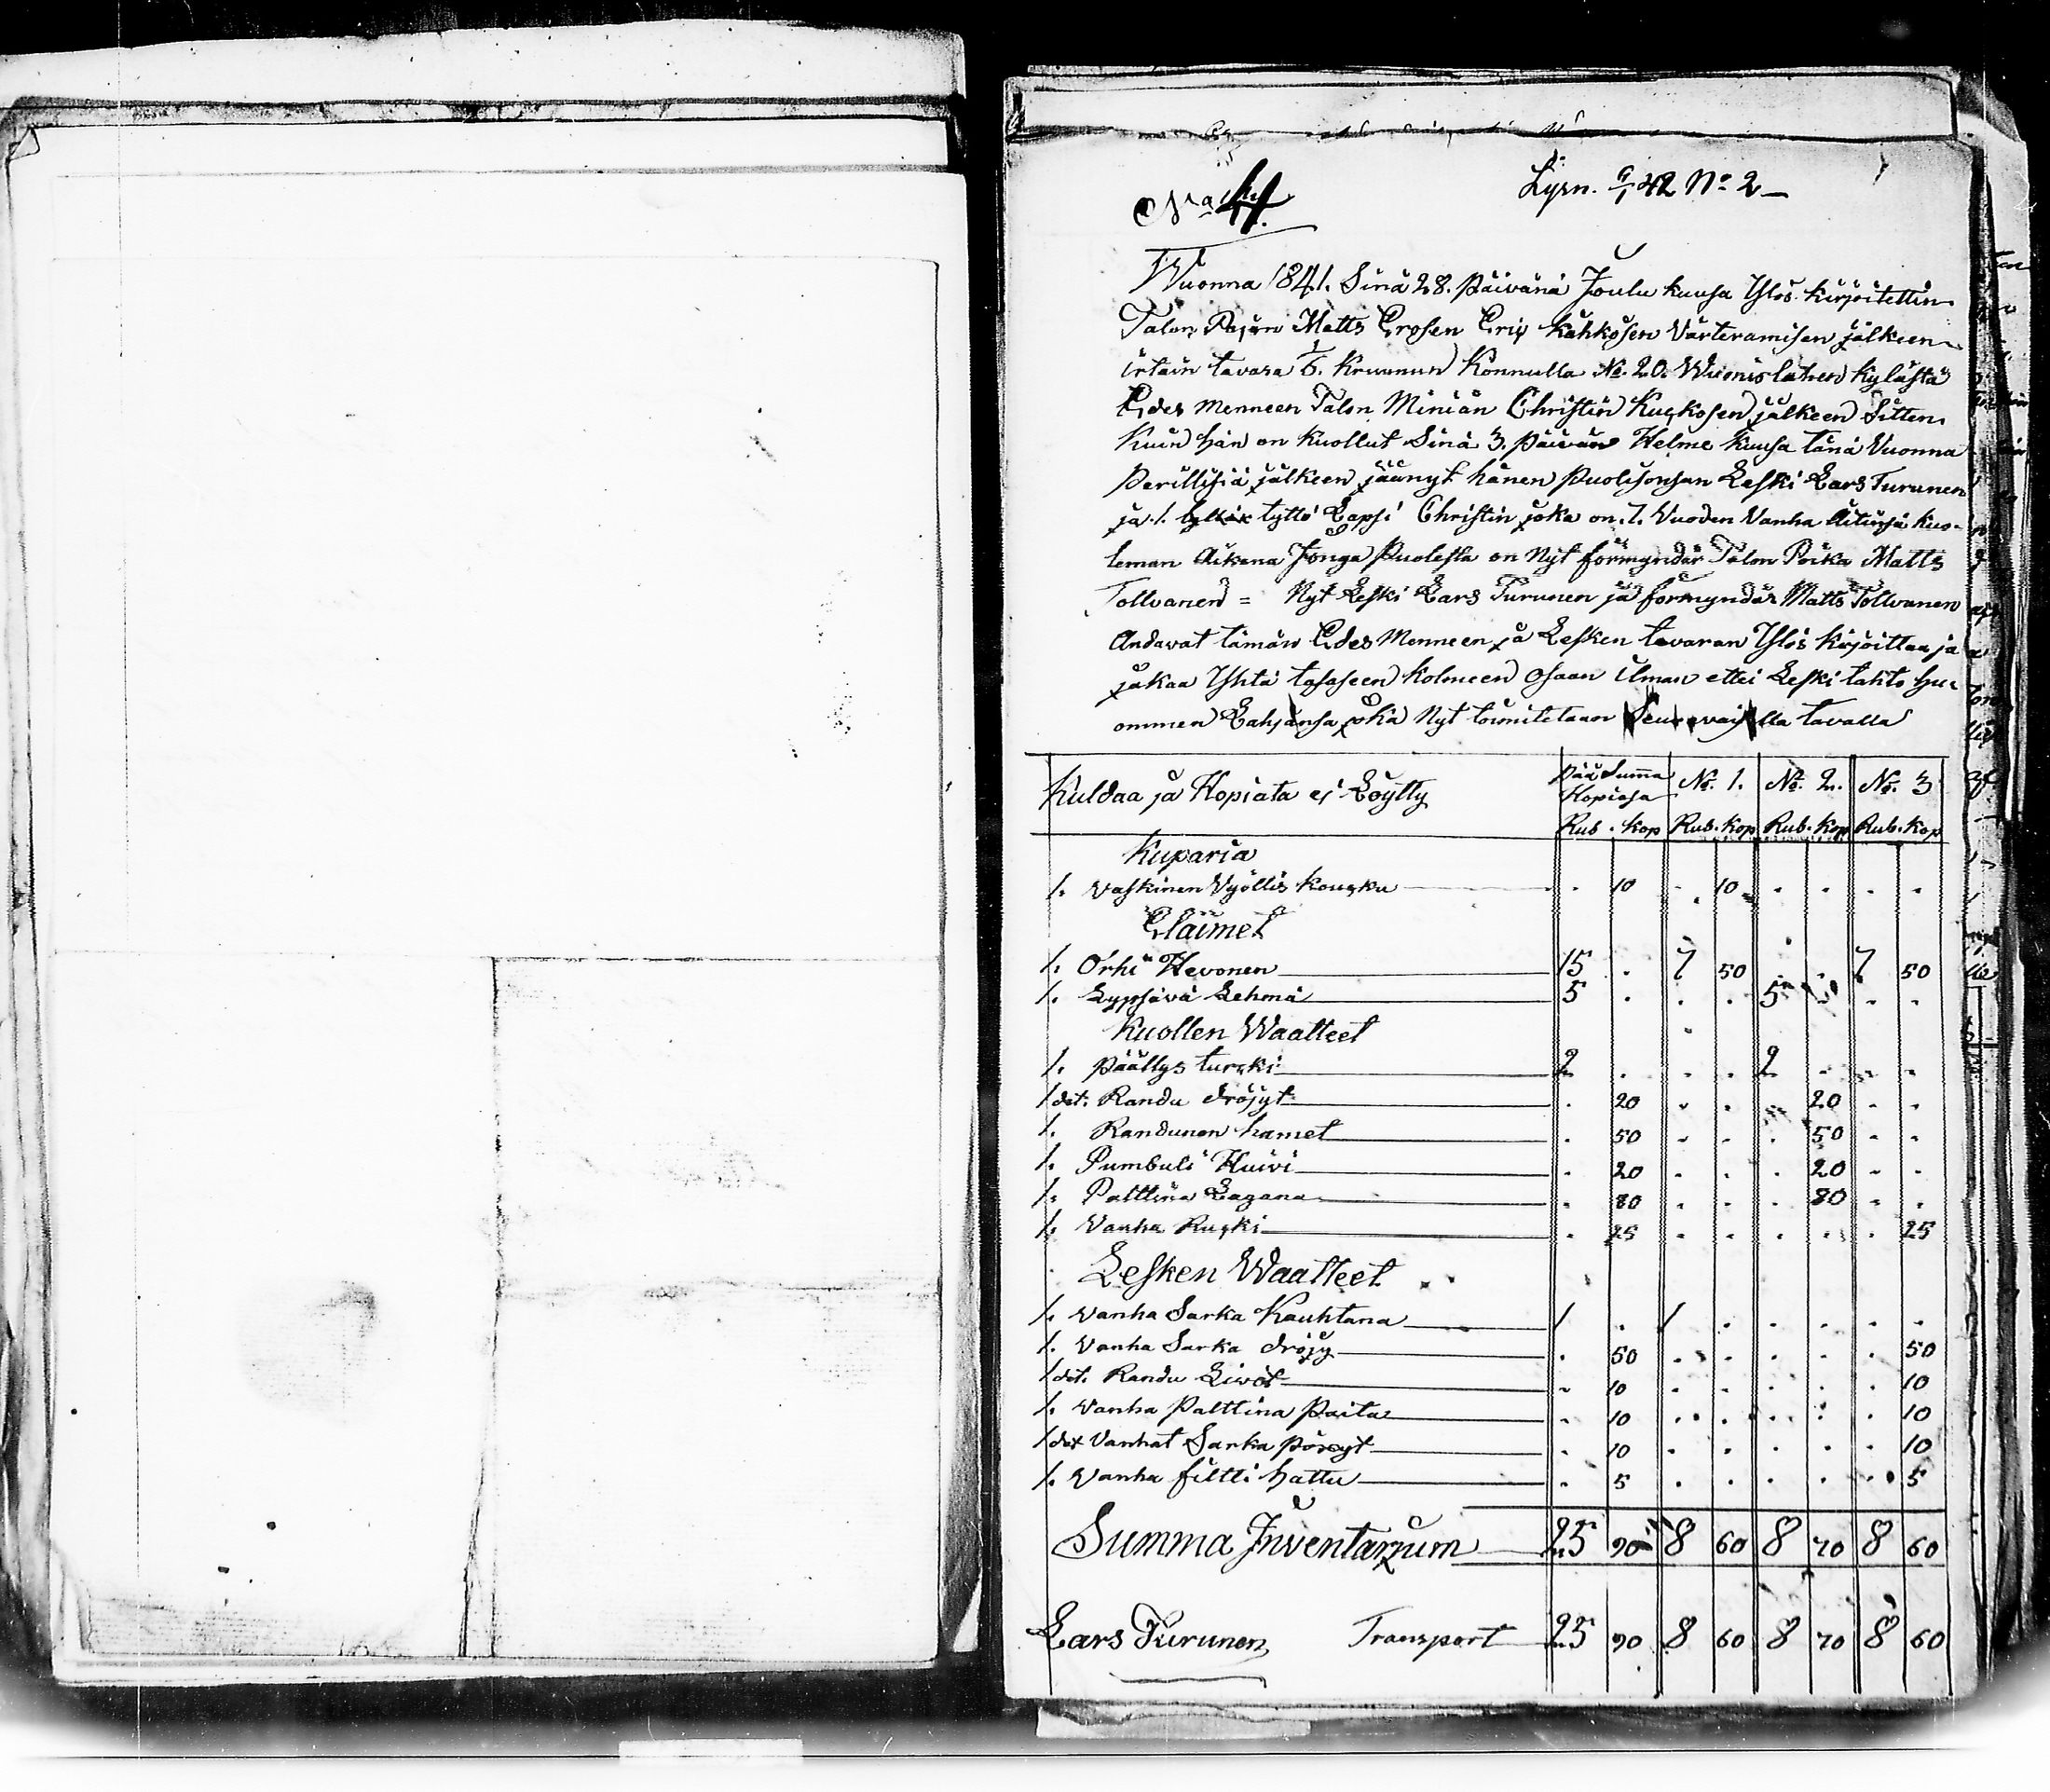 No 41.
Lyrn. 9/1 42 No 2
Wuonna 1841. Sinä 28. Päivänä Joulu kuusa Ylös kirjoitettin
Talon Pojan Matts Erosen Eric Kähkösen Värteramisen jälkeen
irtain tavara Kruunun Konnulla No. 20. Wuonislahen Kylästä
Edes menneen Talon Miniän Christin Kuckosen jälkeen Sitten
Kuin hän on Kuollut Sinä 3. Päivän Helme kuusa tänä Vuonna
Perillisiä jälkeen jäänyt hänen Puolisonsan Leski Lars Turunen
ja 1. tyttö Lapsi Christin joka on 7. Vuoden Vanha Äitinsä kuo-
leman Aikana Jonga Puolesta on Nyt förmyndär Talon Poika Matts
Tollvanen = Nyt Leski Lars Turunen ja förmyndär Matts Tollvanen
Andavat tämän Edes Menneen ja Lesken tavaran Ylös kirjoittaa ja
jakaa Yhtä tasaseen kolmeen Osaan ilman ettei Leski tahto hu-
ommen Lahjansa joka Nyt toimitetaan Seuravaisella tavalla
Kuldaa ja Hopiata ej Löytty Pää Summa Hopiasa No. 1. No. 2. No. 3
Rub. kop Rub. kop Rub. kop Rub. kop
Kuparia
1. Vaskinen Vyöllis koucku . 10 . 10 . . . .
Eläimet
1. Orhi Hevonen 15 . 7 50 . . 7 50
1. Lypsävä Lehmä 5 . . . 5 . . .
Kuollen Waatteet
1. Päällys turcki 2 . . . 2 . . .
1 det. Randu dröjyt . 20 . . . 20 . .
1. Randunen hamet . 50 . . . 50 . .
1. Pumbuli Huivi . 20 . . . 20 . .
1. Palttina Lagana . 80 . . . 80 . .
1. Vanha Rucki . 25 . . . . . 25
Lesken Waatteet
1. Vanha Sarka Kauhtana 1 . 1 . . . . .
1. Vanha Sarka dröjy . 50 . . . . . 50
1 det. Randu Livöt . 10 . . . . . 10
1. Vanha Palttina Paita . 10 . . . . . 10
1 det Vanhat Sarka Pöxyt . 10 . . . . . 10
1. Vanha filtti hattu . 5 . . . . . 5
Summa Inventarium 25 90 8 60 8 70 8 60
Lars Turunen Transport 25 90 8 60 8 70 8 60